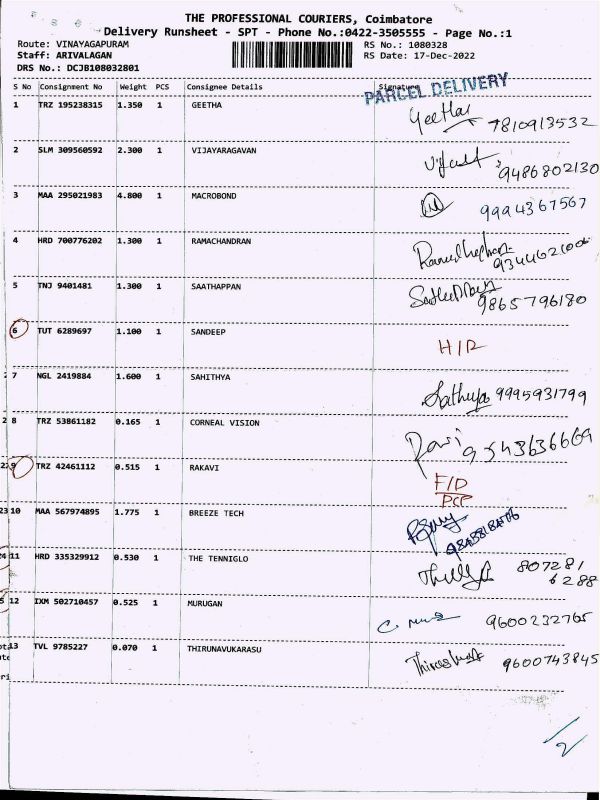 THE PROFESSIONAL COURIERS, Coimbatore
Delivery Runsheet - SPT - Phone No.:0422-3505555 - Page No.:1
Route: VINAYAGAPURAM RS No.: 1080328
Staff: ARIVALAGAN RS Date: 17-Dec-2022
DRS No.: DCJB108032801
PARCEL DELIVERY
S No Consignment No Weight PCS Consignee Details Signature
1 TRZ 195238315 1.350 1 GEETHA Geetha 7810913532
2 SLM 309560592 2.300 1 VIJAYARAGAVAN 9486802130
3 MAA 295021983 4.800 1 MACROBOND 9994367567
4 HRD 700776202 1.300 1 RAMACHANDRAN
5 TNJ 9401481 1.300 1 SAATHAPPAN 9865796180
6 TUT 6289697 1.100 1 SANDEEP H/R
7 NGL 2419884 1.600 1 SAHITHYA Sathya 9995931799
8 TRZ 53861182 0.165 1 CORNEAL VISION Ravi 9543636669
9 TRZ 42461112 0.515 1 RAKAVI F/D
PCP
10 MAA 567974895 1.775 1 BREEZE TECH
11 HRD 335329912 0.530 1 THE TENNIGLO 807281
6288
12 IXM 502710457 0.525 1 MURUGAN 9600232765
13 TVL 9785227 0.070 1 THIRUNAVUKARASU 9600743845